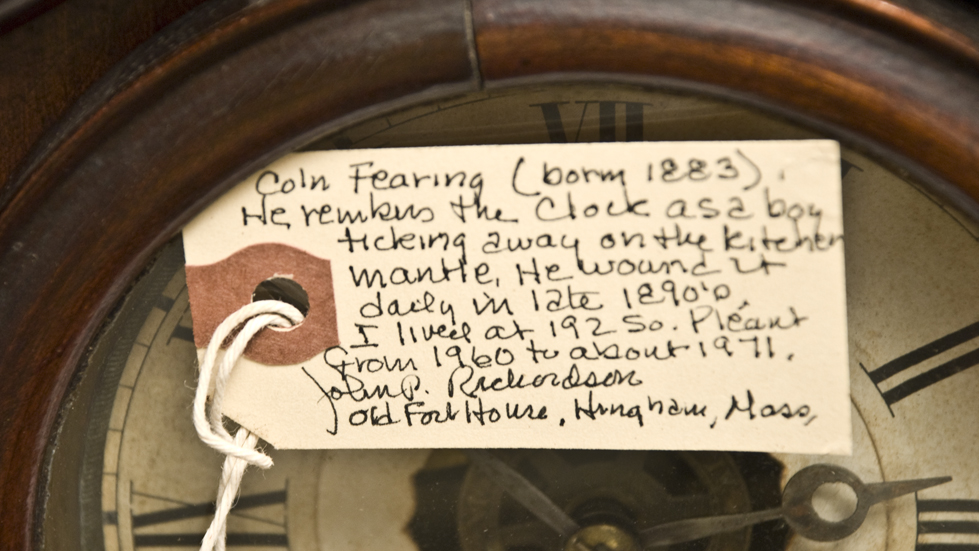 VII
Coln Fearing (born 1883).
He rembers the Clock as a boy
ticking away on the kitchen
mantle, He wound it
daily in late 1890's,
I lived at 192 So. Pleant
From 1960 to about 1971.
John P. Richardson
old Fort House, Hingham, Mass,